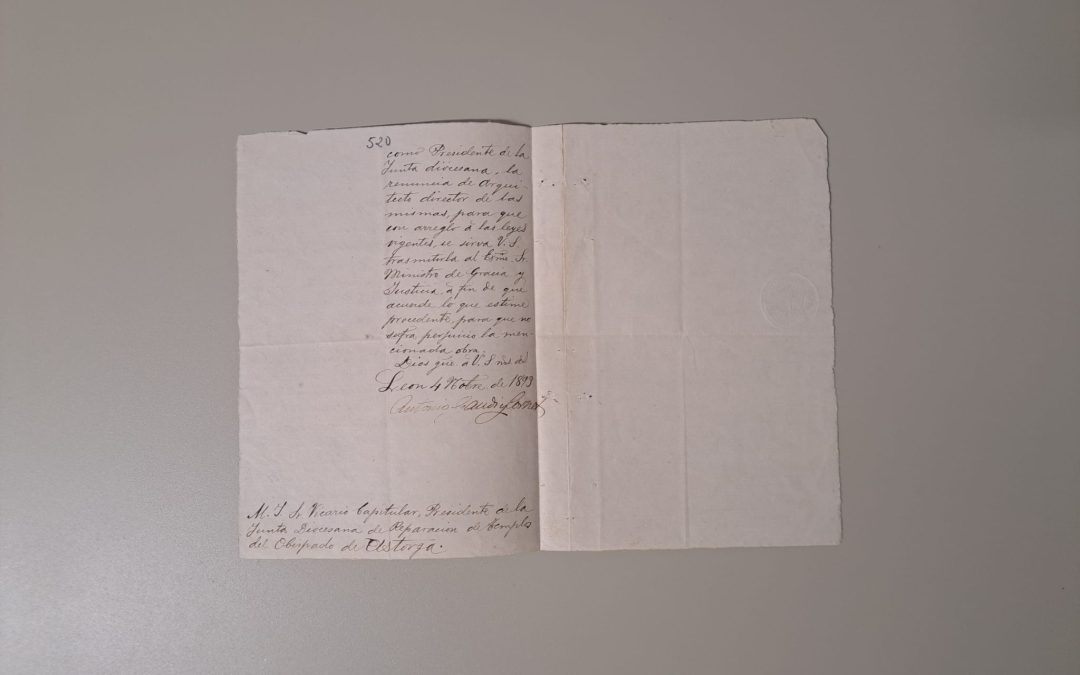 520
como Presidente de la
Junta diocesana, la
renuncia de Arqui-
tecto director de las
mismas, para que
con arreglo á las leyes
vigentes, se sirva V. S.
trasmitirla al Exmo. Sr.
Ministro de Gracia y
Justicia, á fin de que
acuerde lo que estime
procedente, para que no
sufra perjuicio la men-
cionada obra.
Dios gue. á V. S.
Leon 4 Nobre de 1893
Antonio Gaudí y Cornet
M. I. Sr. Vicario Capitular, Presidente de la
Junta Diocesana de Reparacion de Templs
del Obispado de Astorga.